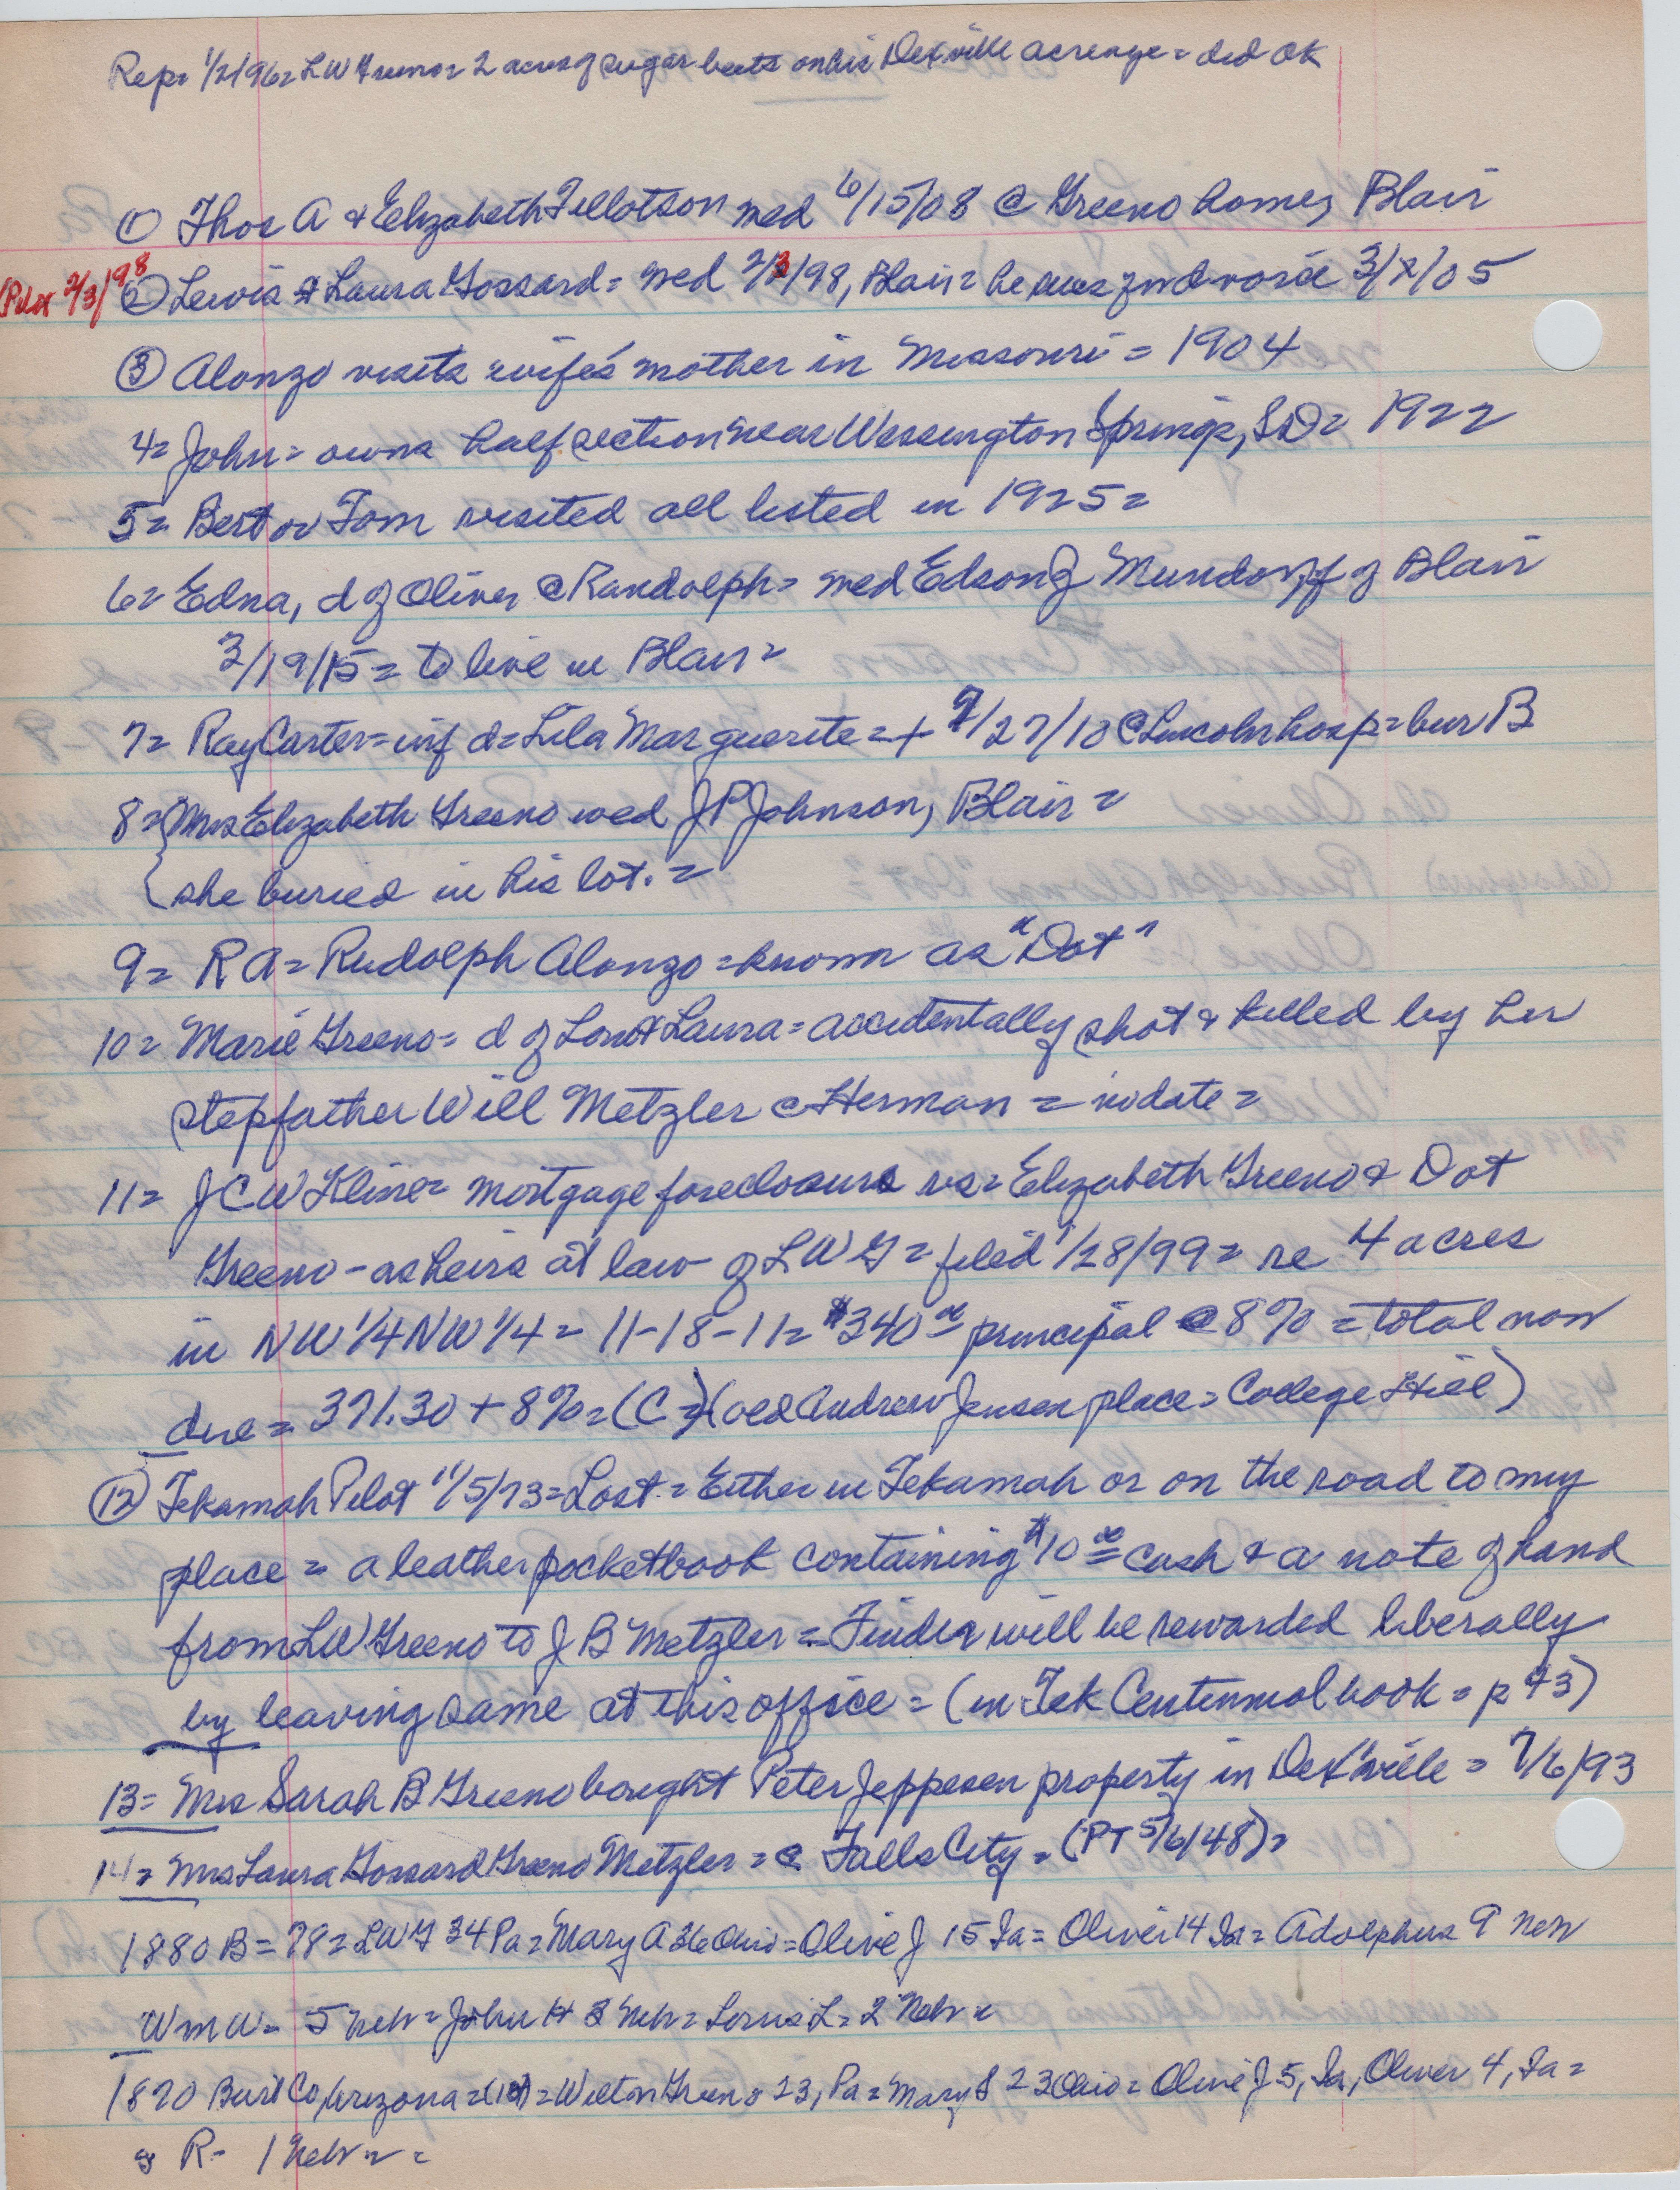 Rep= 1/2/96= LW Greeno= 2 acres of sugar beets on his Dexville acreage = did OK
① Thos A & Elizabeth Tellotson med 6/15/08 @ Greeno home, Blair
(Pilot 2/3/98 ② Lewis & Laura Gossard = wed 2/3/98, Blair = he sues for divorce 3/8/05
③ Alonzo visits wife's mother in Missouri = 1904
4= John = owns half section near Wessington Springs, SD= 1922
5= Bert or Tom visited all listed in 1925=
6= Edna, d of Oliver @ Randolph = wed Edson J Mundorff of Blair
3/19/15 = to live in Blair =
7= Ray Carter = inf d= Lila Marguerite = + 9/27/10 @ Lincoln hosp = bur B
8= {Mrs Elizabeth Greeno wed J P Johnson, Blair =
{ she buried in his lot. =
9= R A = Rudolph Alonzo = known as "Dot"
10= Marie Greeno = d of Lon & Laura = accidentally shot & killed by her
stepfather Will Metzler @ Herman = no date =
11= J C W Kline = mortgage foreclosure vs= Elizabeth Greeno & Dot
Greeno - as heirs at law of L W G = filed 1/28/99 = re 4 acres
in NW 1/4 NW 1/4 = 11-18-11= $340 00 principal @ 8% = total now
due = 371.30 + 8% = (C =) (old Andrew Jensen place = College Hill)
⑫ Tekamah Pilot 11/5/73 = Lost = Either in Tekamah or on the road to my
place = a leather pocketbook containing $10 00 cash & a note of hand
from LW Greeno to J B Metzler = Finder will be rewarded liberally
by leaving same at this office = (in Tek Centennial book = p 43)
13= Mrs Sarah B Greeno bought Peter Jeppesen property in Dex'ville = 7/6/93
14= Mrs Laura Gossard Greeno Metzler = @ Falls City = (PT 5/6/48)=
1880 B = 78 = LWG 34 Pa = Mary A 36 Ohio = Olive J 15 Ia = Oliver 14 Ia = Adolphus 9 Neb
Wm W = 5 Neb = John H 3 Neb = Lewis L = 2 Neb =
1870 Burt Co, Arizona = = Wilton Greeno 23, Pa = Mary S 23 Ohio = Olive J 5, Ia, Oliver 4, Ia =
& R - 1 Neb = =